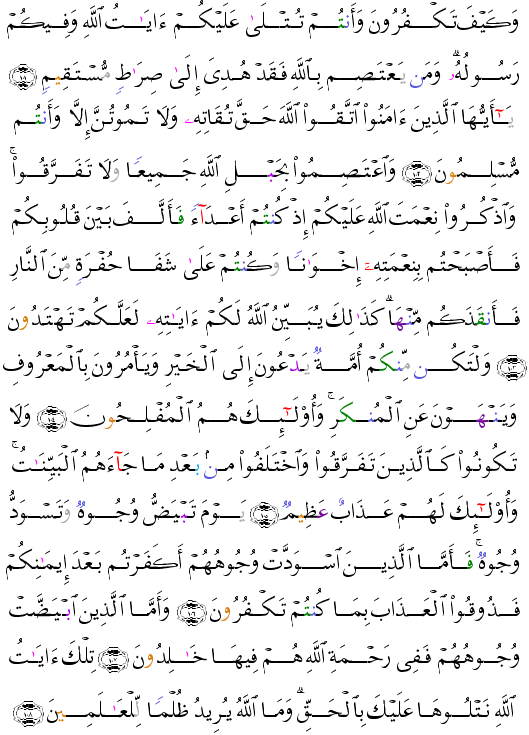 وَكَيْفَ تَكْفُرُونَ وَأَنتُمْ تُتْلَىٰ عَلَيْكُمْ ءَايَـٰتُ ٱللَّهِ وَفِيكُمْ
رَسُولُهُۥ ۗ وَمَن يَعْتَصِم بِٱللَّهِ فَقَدْ هُدِىَ إِلَىٰ صِرَٰطٍ مُّسْتَقِيمٍ ﴿١٠١﴾
يَـٰٓأَيُّهَا ٱلَّذِينَ ءَامَنُوا۟ ٱتَّقُوا۟ ٱللَّهَ حَقَّ تُقَاتِهِۦ وَلَا تَمُوتُنَّ إِلَّا وَأَنتُم
مُّسْلِمُونَ ﴿١٠٢﴾ وَٱعْتَصِمُوا۟ بِحَبْلِ ٱللَّهِ جَمِيعًا وَلَا تَفَرَّقُوا۟ ۚ
وَٱذْكُرُوا۟ نِعْمَتَ ٱللَّهِ عَلَيْكُمْ إِذْ كُنتُمْ أَعْدَآءً فَأَلَّفَ بَيْنَ قُلُوبِكُمْ
فَأَصْبَحْتُم بِنِعْمَتِهِۦٓ إِخْوَٰنًا وَكُنتُمْ عَلَىٰ شَفَا حُفْرَةٍ مِّنَ ٱلنَّارِ
فَأَنقَذَكُم مِّنْهَا ۗ كَذَٰلِكَ يُبَيِّنُ ٱللَّهُ لَكُمْ ءَايَـٰتِهِۦ لَعَلَّكُمْ تَهْتَدُونَ
﴿١٠٣﴾ وَلْتَكُن مِّنكُمْ أُمَّةٌ يَدْعُونَ إِلَى ٱلْخَيْرِ وَيَأْمُرُونَ بِٱلْمَعْرُوفِ
وَيَنْهَوْنَ عَنِ ٱلْمُنكَرِ ۚ وَأُو۟لَـٰٓئِكَ هُمُ ٱلْمُفْلِحُونَ ﴿١٠٤﴾ وَلَا
تَكُونُوا۟ كَٱلَّذِينَ تَفَرَّقُوا۟ وَٱخْتَلَفُوا۟ مِنۢ بَعْدِ مَا جَآءَهُمُ ٱلْبَيِّنَـٰتُ ۚ
وَأُو۟لَـٰٓئِكَ لَهُمْ عَذَابٌ عَظِيمٌ ﴿١٠٥﴾ يَوْمَ تَبْيَضُّ وُجُوهٌ وَتَسْوَدُّ
وُجُوهٌ ۚ فَأَمَّا ٱلَّذِينَ ٱسْوَدَّتْ وُجُوهُهُمْ أَكَفَرْتُم بَعْدَ إِيمَـٰنِكُمْ
فَذُوقُوا۟ ٱلْعَذَابَ بِمَا كُنتُمْ تَكْفُرُونَ ﴿١٠٦﴾ وَأَمَّا ٱلَّذِينَ ٱبْيَضَّتْ
وُجُوهُهُمْ فَفِى رَحْمَةِ ٱللَّهِ هُمْ فِيهَا خَـٰلِدُونَ ﴿١٠٧﴾ تِلْكَ ءَايَـٰتُ
ٱللَّهِ نَتْلُوهَا عَلَيْكَ بِٱلْحَقِّ ۗ وَمَا ٱللَّهُ يُرِيدُ ظُلْمًا لِّلْعَـٰلَمِينَ ﴿١٠٨﴾